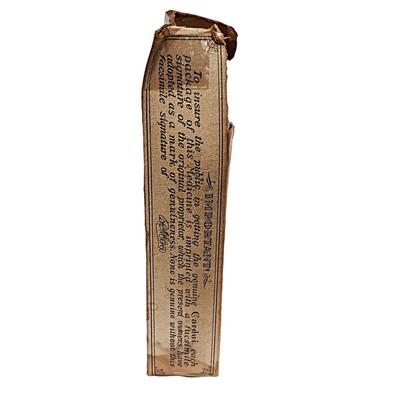 IMPORTANT!
To insure the public in getting the genuine Cardui, each
package of this Medicine is imprinted with a facsimile
signature of the original proprietor, which the present owners have
adopted as a mark of genuineness. None is genuine without this
facsimile signature of